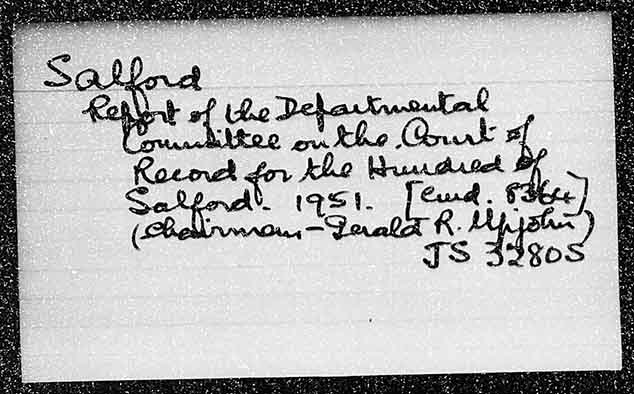 Salford
Report of the Departmental
Committee on the Court of
Record for the Hundred of
Salford. 1951. [Cmd. 8364]
(Chairman - Gerald R. Upjohn)
JS 3280S